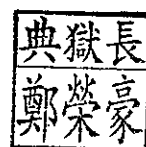 典獄長
鄭榮豪